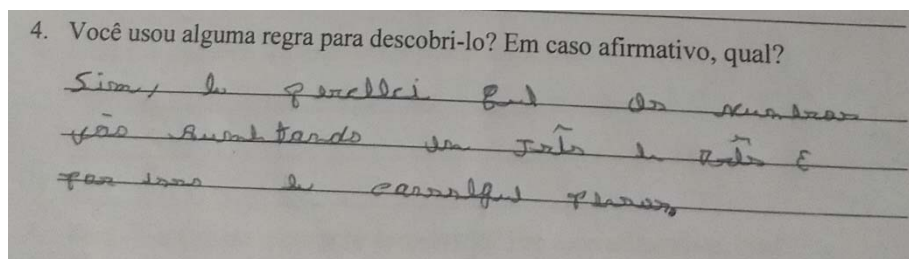 4. Você usou alguma regra para descobri-lo? Em caso afirmativo, qual?
Sim, eu percebi que os numeros
vão aumentando em três e três E
por isso eu consegui